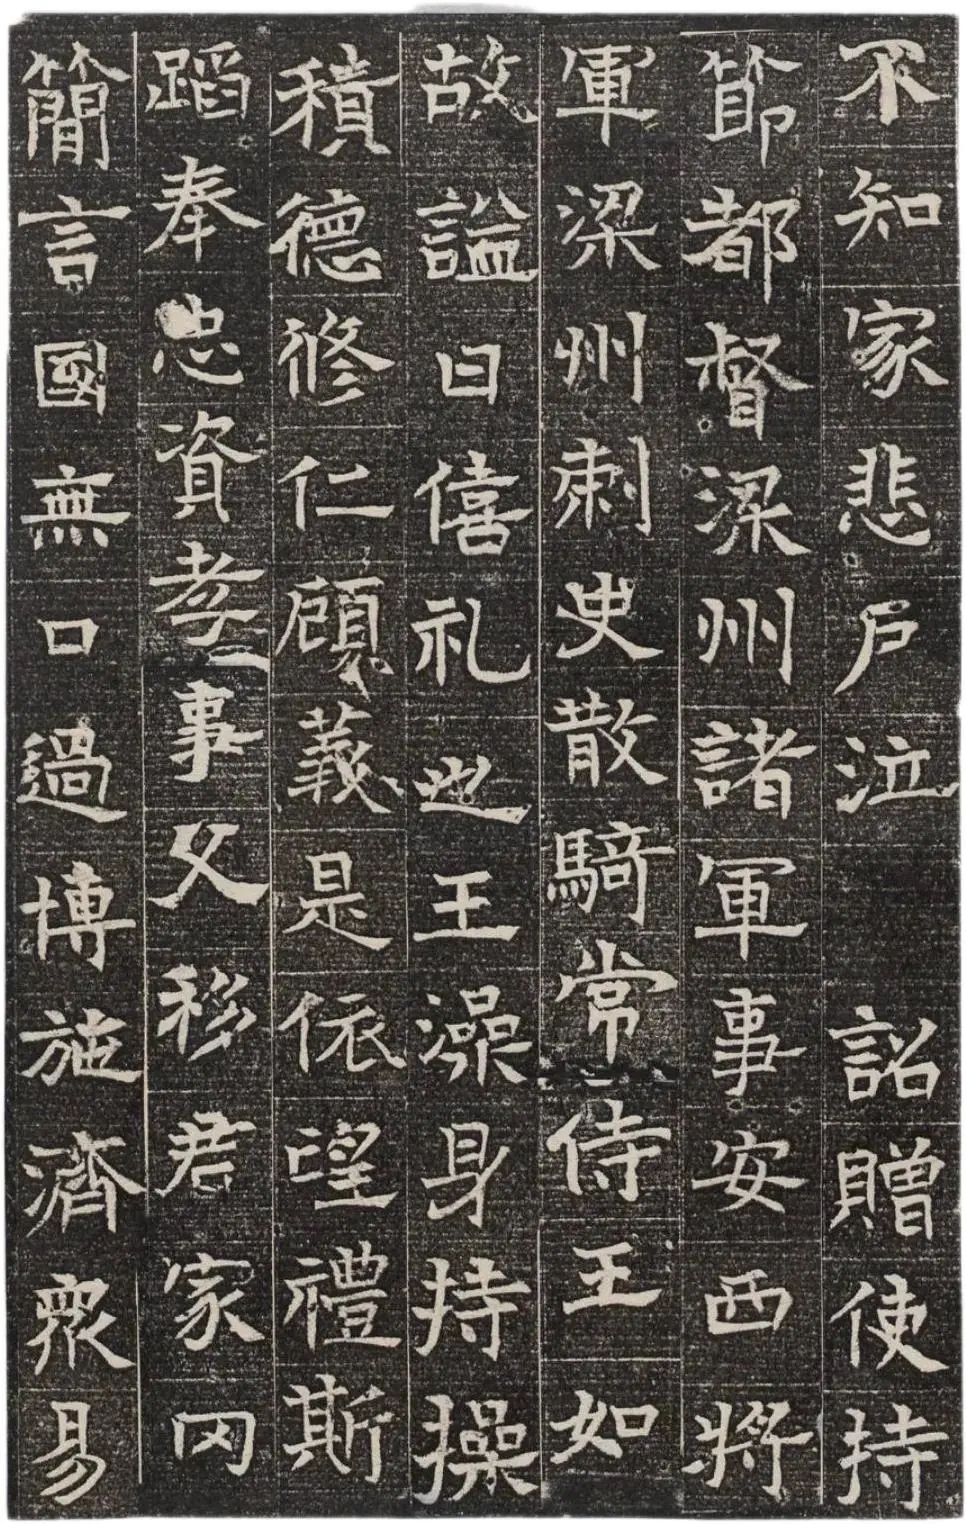 不知家悲戶泣 詔贈使持
節都督梁州諸軍事安西將
軍梁州刺史散騎常侍王如
故謚曰僖礼也王澡身持操
積德修仁顧義是依望禮斯
蹈奉忠資孝事父移君家冈
簡言國無口過博施濟眾易